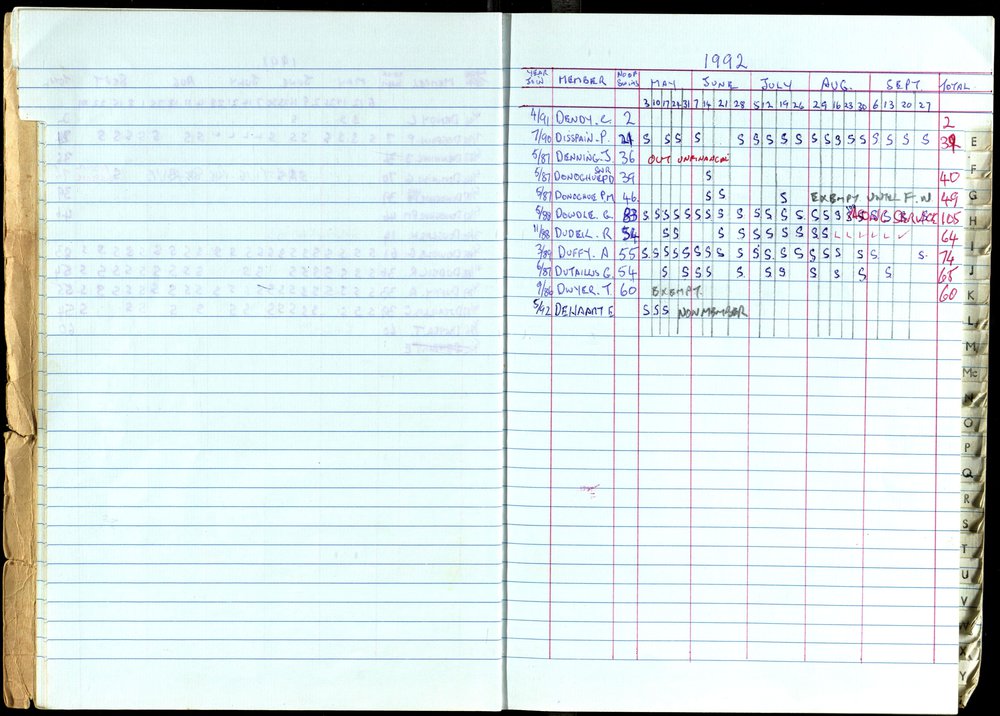 1992
YEAR JOIN MEMBER NO OF SWIMS MAY JUNE JULY AUG. SEPT. TOTAL
3 10 17 24 31 7 14 21 28 5 12 19 26 2 9 16 23 30 6 13 20 27
4/91 DENDY. C. 2 2
7/90 DISSPAIN. P. S S S S S S S S S S S S S S S S S
5/87 DENNING. J. 36 OUT UNFINANCIAL
5/87 DONOGHUE P.D SNR 39 S 40
5/87 DONOGHUE P.M 46 S S S EXEMPT UNTIL F.N. 49
5/88 DOWDLE. G. 83 S S S S S S S S S S S S S S S 105
11/88 DUDELL. R 54 S S S S S S S S S S 64
3/89 DUFFY. A 55 S S S S S S S S S S S S S S S S S S S 74
6/87 DUTAILLIS G. 54 S S S S S S S S S S S 65
9/86 DWYER. T. 60 EXEMPT. 60
5/92 DEHAART E S S S NON MEMBER
E
F
G
H
I
J
K
L
M
Mc
N
O
P
Q
R
S
T
U
V
W
X
Y